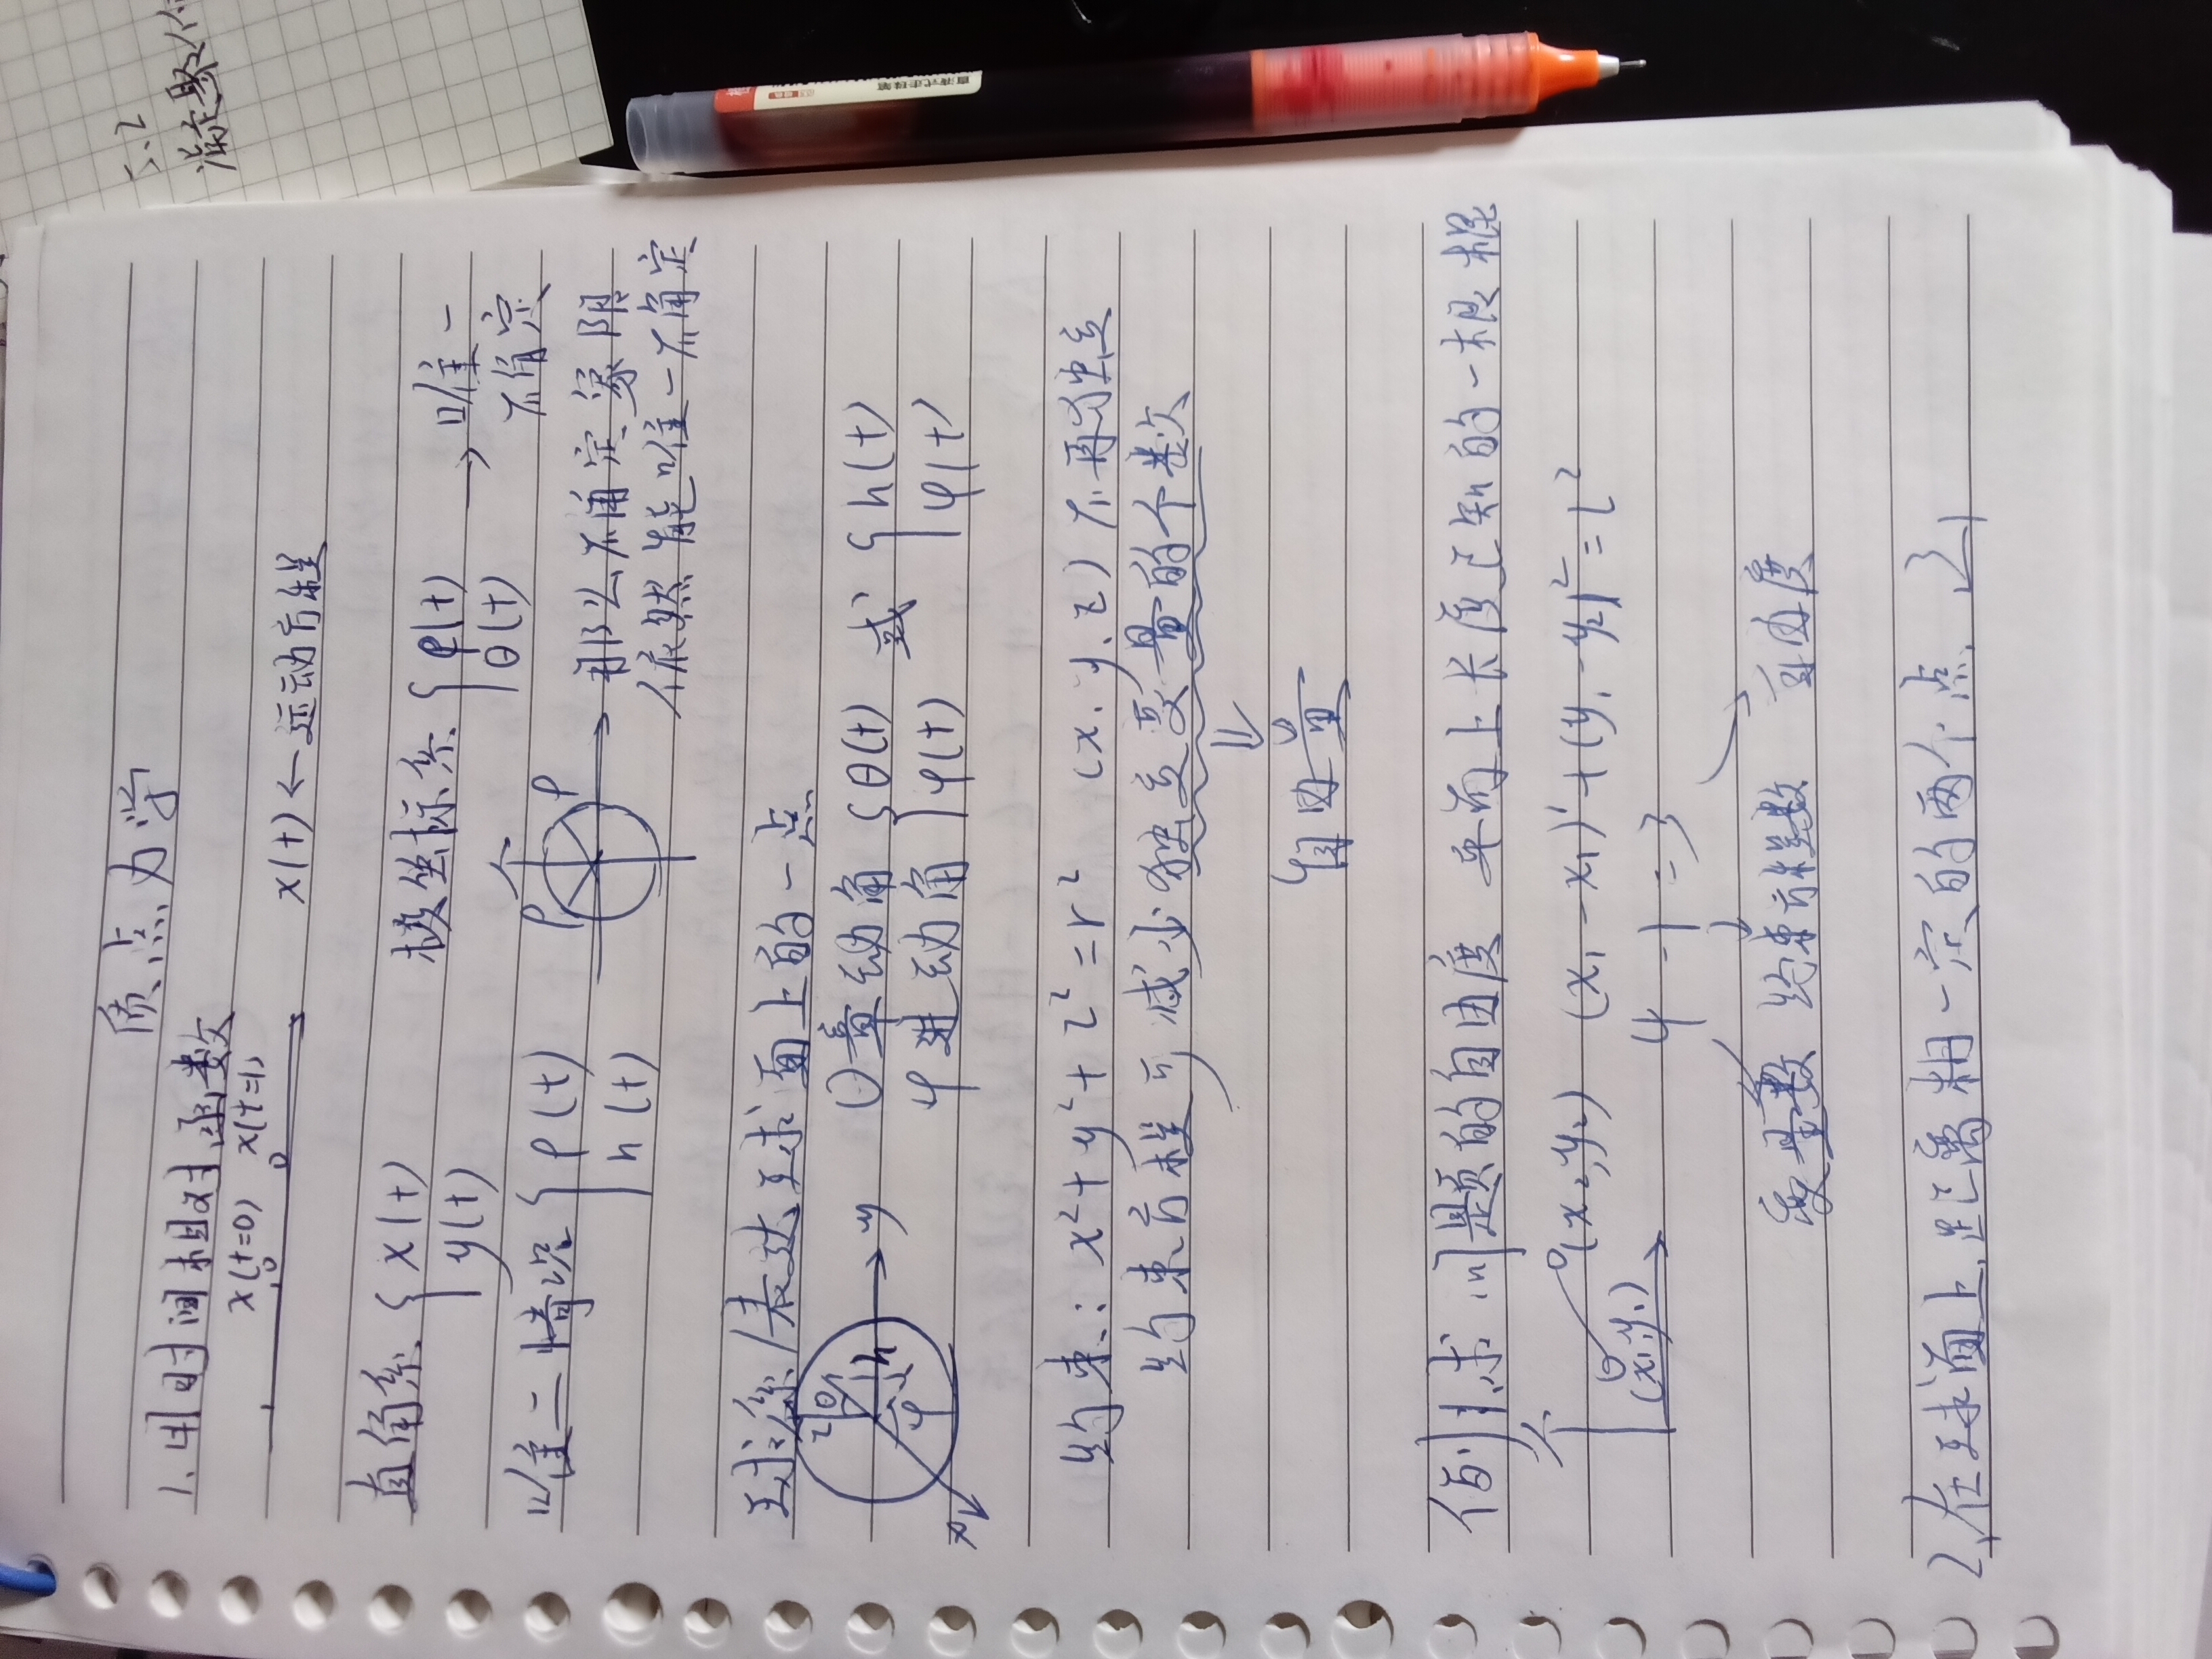 质点力学
1. 用时间相对函数
x(t=0) x(t=1) x(t) ← 运动方程
直角系 { x(t) y(t)
极坐标系 { ρ(t) θ(t) → 唯一
确定
唯二情况 { ρ(t) h(t)
ρ ρ
→ 那么确定象限
依然能唯一确定
球系/表达球面上的一点
z θ r h φ y x
θ 章动角 { θ(t) 或 { h(t)
φ 进动角 φ(t) φ(t)
约束: x²+y²+z²=r² (x,y,z) 不再独立
约束方程可减少独立变量的个数
⇓
自由量
例1.求问题的自由度 平面上长度已知的一根棍
(x₁,y₁) (x₂,y₂) (x₁-x₂)²+(y₁-y₂)²=l²
4-1=3
变量数 约束方程数 自由度
2,在球面上,距离相一定的两个点